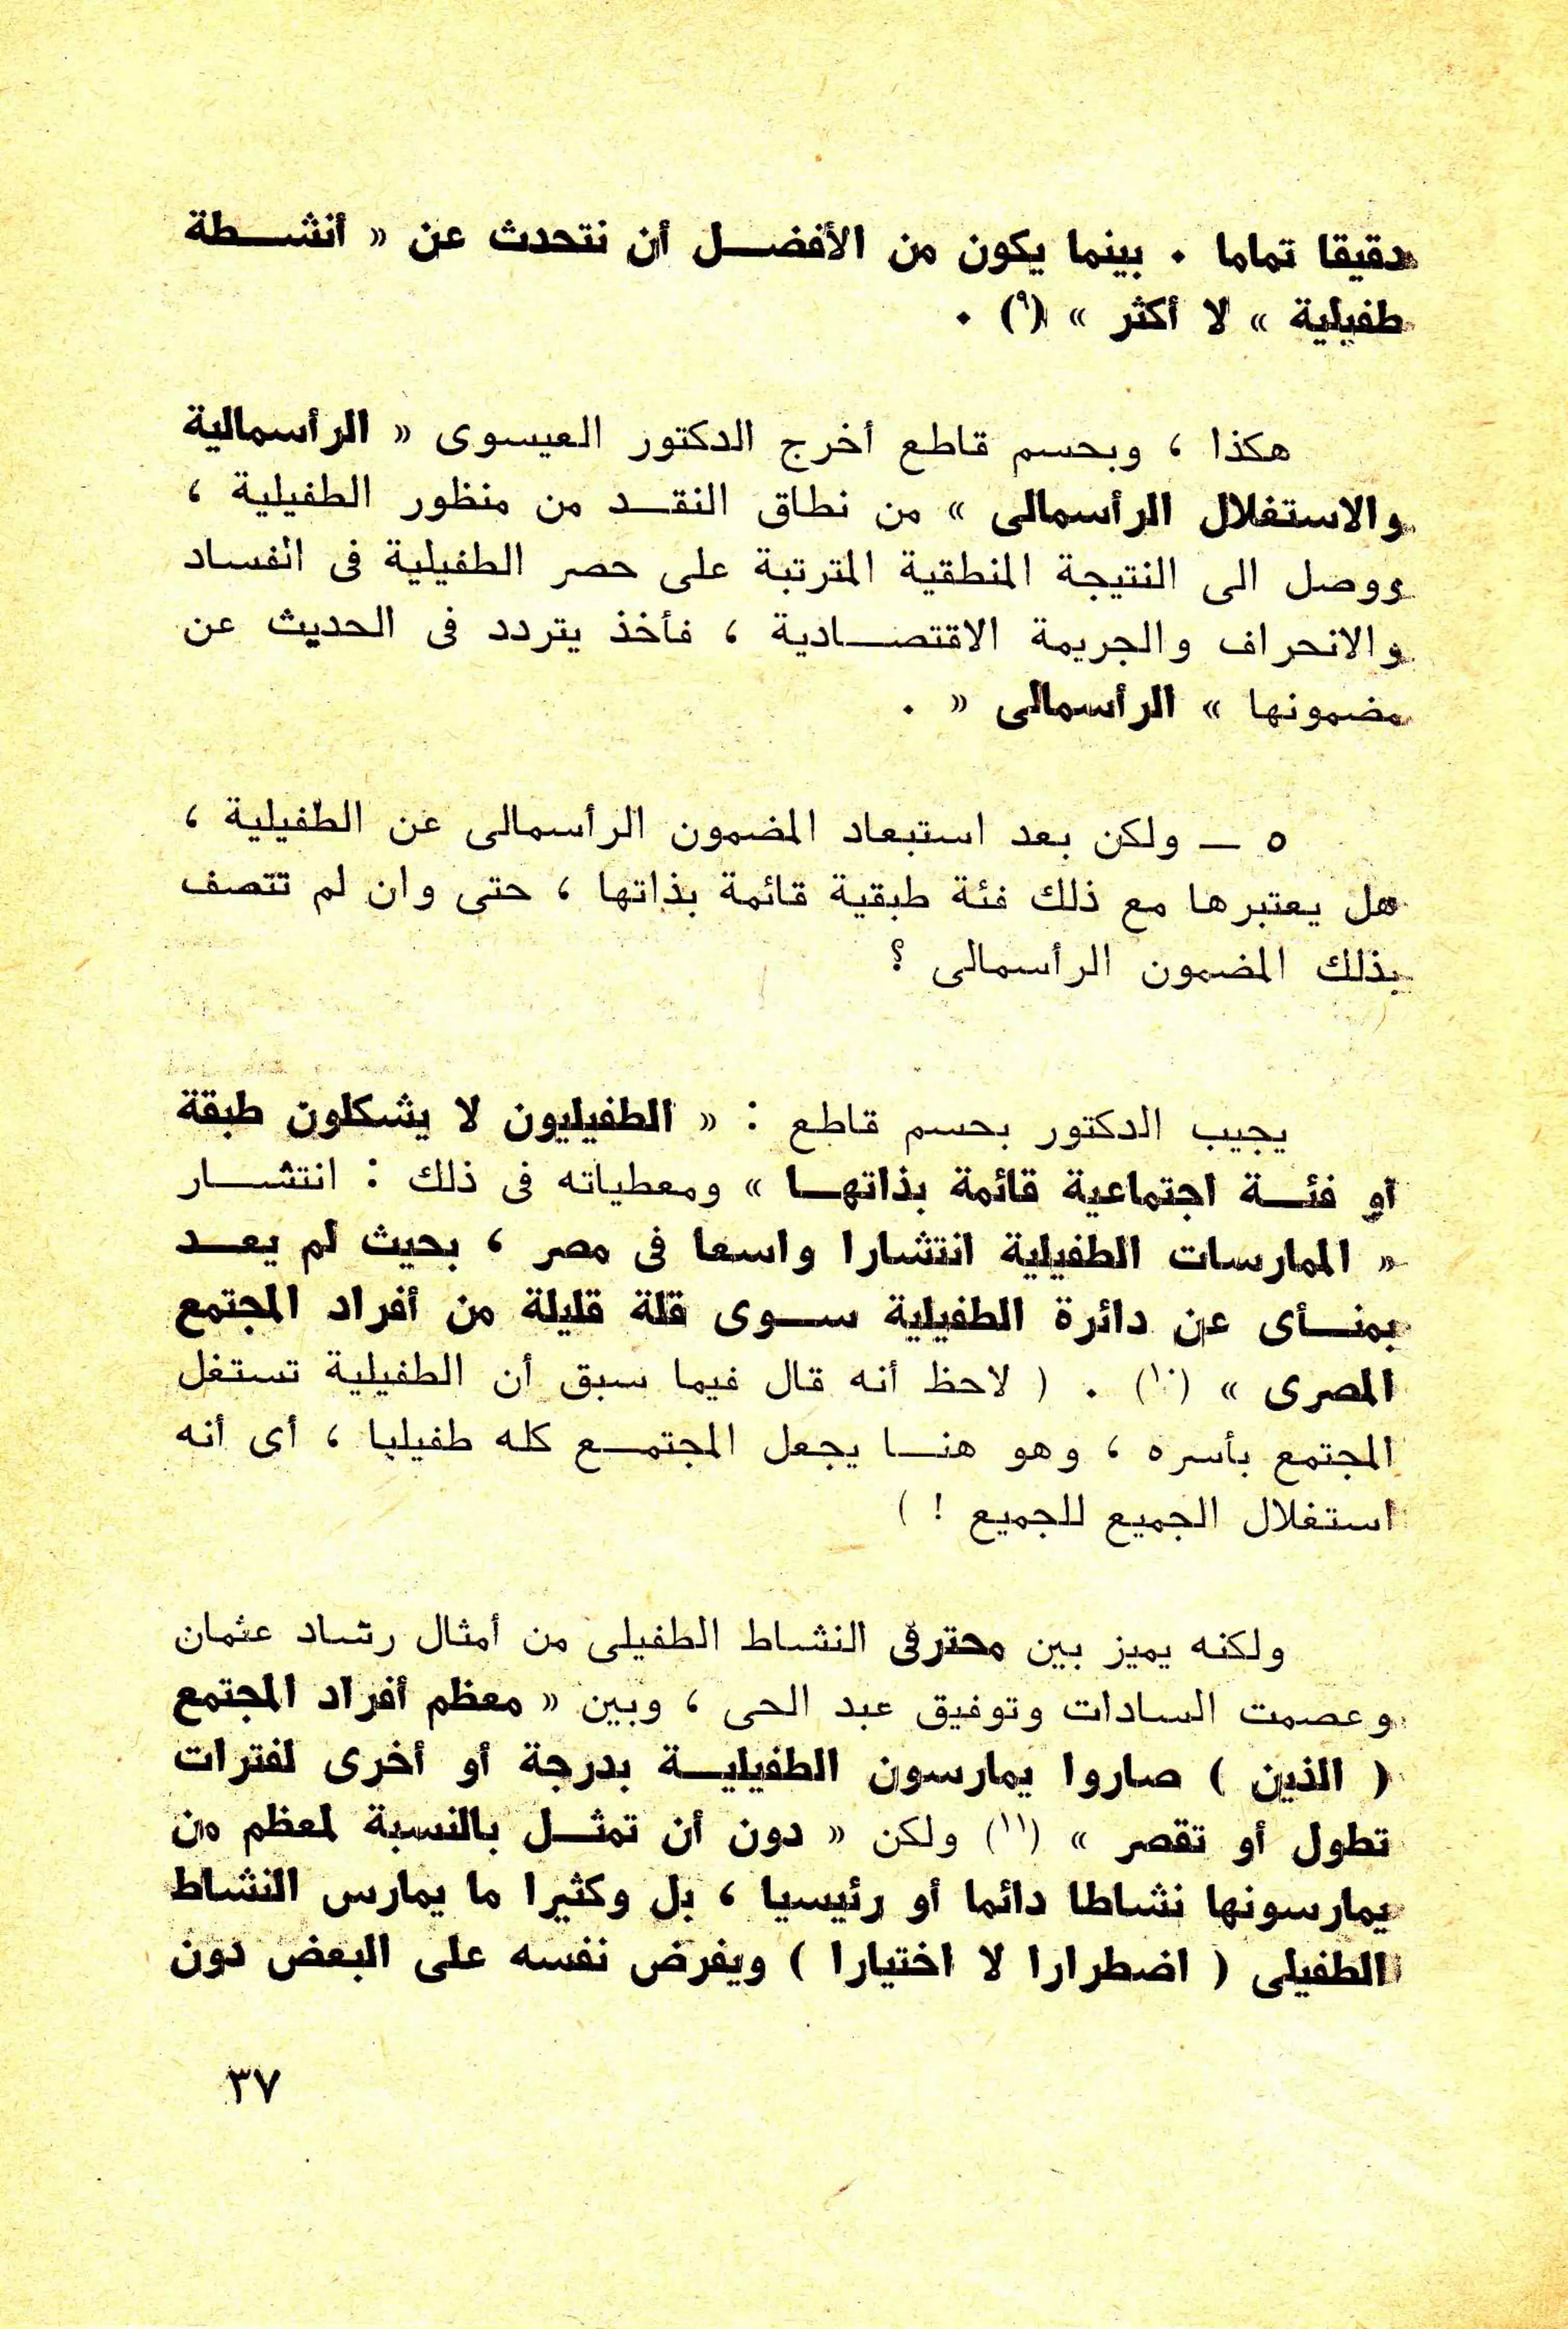 دقيقا تماما . بينما يكون من الأفضل أن نتحدث عن « أنشطة
طفيلية » لا أكثر » (٩) .
هكذا ، وبحسم قاطع أخرج الدكتور العيسوى « الرأسمالية
والاستغلال الرأسمالى » من نطاق النقد من منظور الطفيلية ،
ووصل الى النتيجة المنطقية المترتبة على حصر الطفيلية فى الفساد
والانحراف والجريمة الاقتصادية ، فأخذ يتردد فى الحديث عن
مضمونها » الرأسمالى « .
٥ — ولكن بعد استبعاد المضمون الرأسمالى عن الطفيلية ،
هل يعتبرها مع ذلك فئة طبقية قائمة بذاتها ، حتى وان لم تتصف
بذلك المضمون الرأسمالى ؟
يجيب الدكتور بحسم قاطع : « الطفيليون لا يشكلون طبقة
أو فئة اجتماعية قائمة بذاتها » ومعطياته فى ذلك : انتشار
« الممارسات الطفيلية انتشارا واسعا فى مصر ، بحيث لم يعد
بمنأى عن دائرة الطفيلية سوى قلة قليلة من أفراد المجتمع
المصرى » (١٠) . ( لاحظ أنه قال فيما سبق أن الطفيلية تستغل
المجتمع بأسره ، وهو هنا يجعل المجتمع كله طفيليا ، أى أنه
استغلال الجميع للجميع ! )
ولكنه يميز بين محترفى النشاط الطفيلى من أمثال رشاد عثمان
وعصمت السادات وتوفيق عبد الحى ، وبين « معظم أفراد المجتمع
( الذين ) صاروا يمارسون الطفيلية بدرجة أو أخرى لفترات
تطول أو تقصر » (١١) ولكن « دون أن تمثل بالنسبة لمعظم من
يمارسونها نشاطا دائما أو رئيسيا ، بل وكثيرا ما يمارس النشاط
الطفيلى ( اضطرارا لا اختيارا ) ويفرض نفسه على البعض دون
٣٧